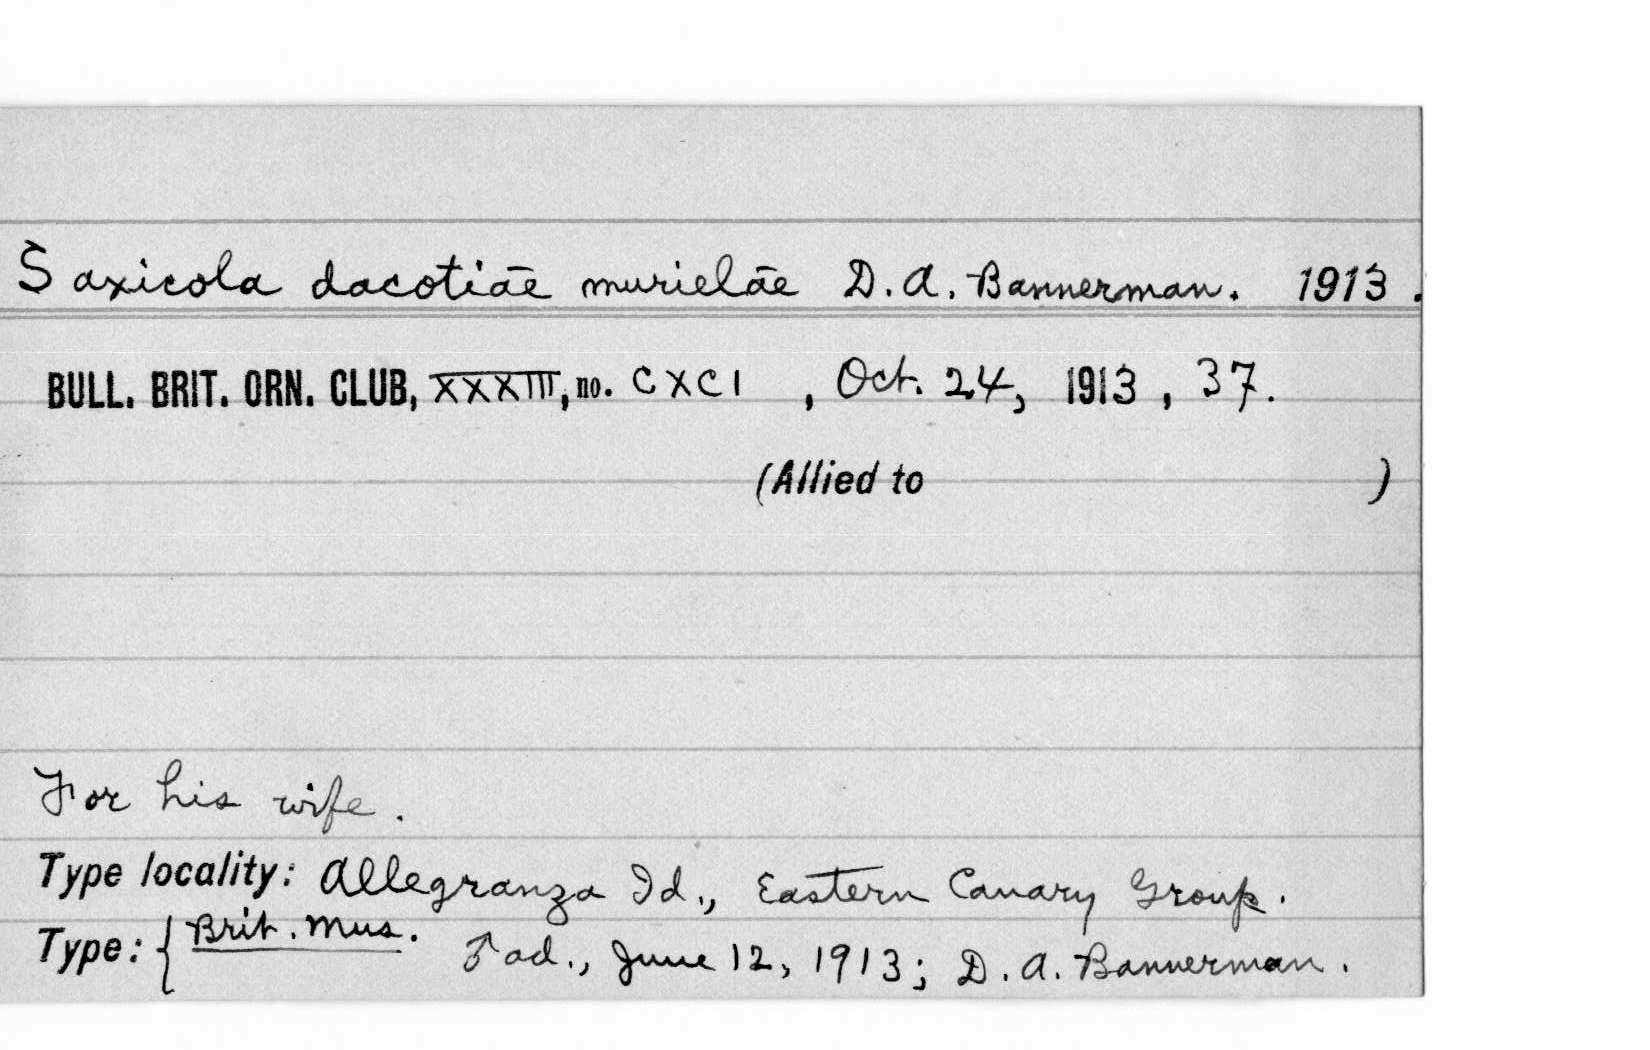 Saxicola dacotiae murielae D. A. Bannerman. 1913.
BULL. BRIT. ORN. CLUB, XXXIII, no. CXCI , Oct. 24, 1913 , 37.
(Allied to )
For his wife.
Type locality: Allegranza Id., Eastern Canary Group.
Type: { Brit. Mus. ♂ ad., June 12, 1913; D. A. Bannerman.